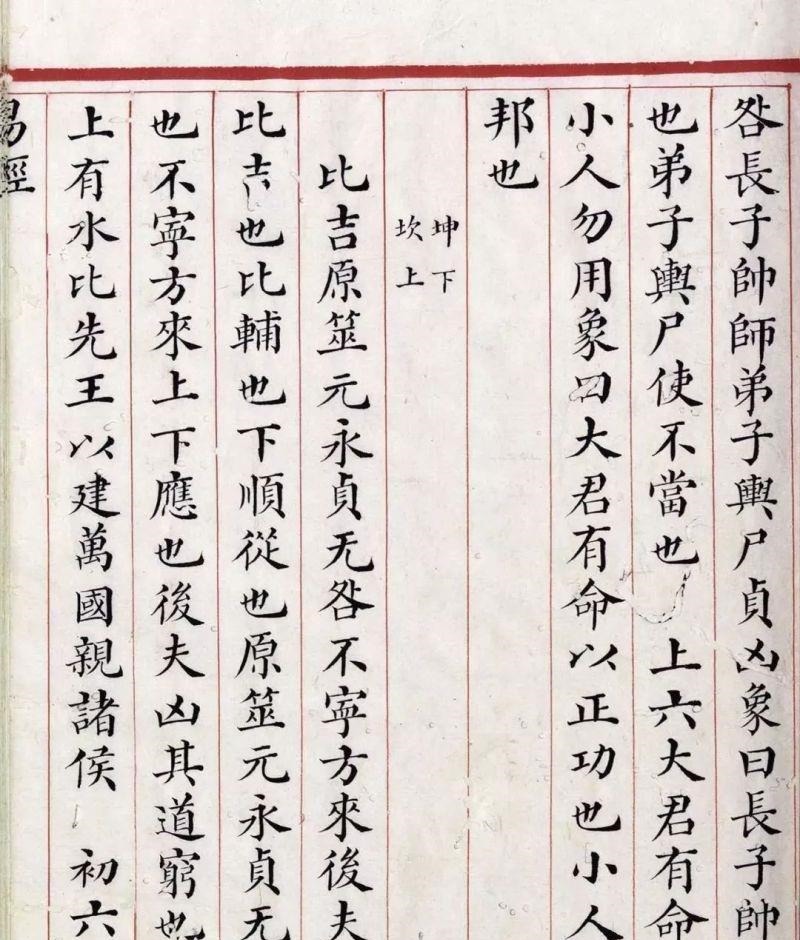 咎長子帥師弟子輿尸貞凶象曰長子帥
也弟子輿尸使不當也 上六大君有命
小人勿用象曰大君有命以正功也小人
邦也
坤下
坎上
比吉原筮元永貞无咎不寧方來後夫
比吉也比輔也下順從也原筮元永貞无
也不寧方來上下應也後夫凶其道窮也
上有水比先王以建萬國親諸侯 初六
易經